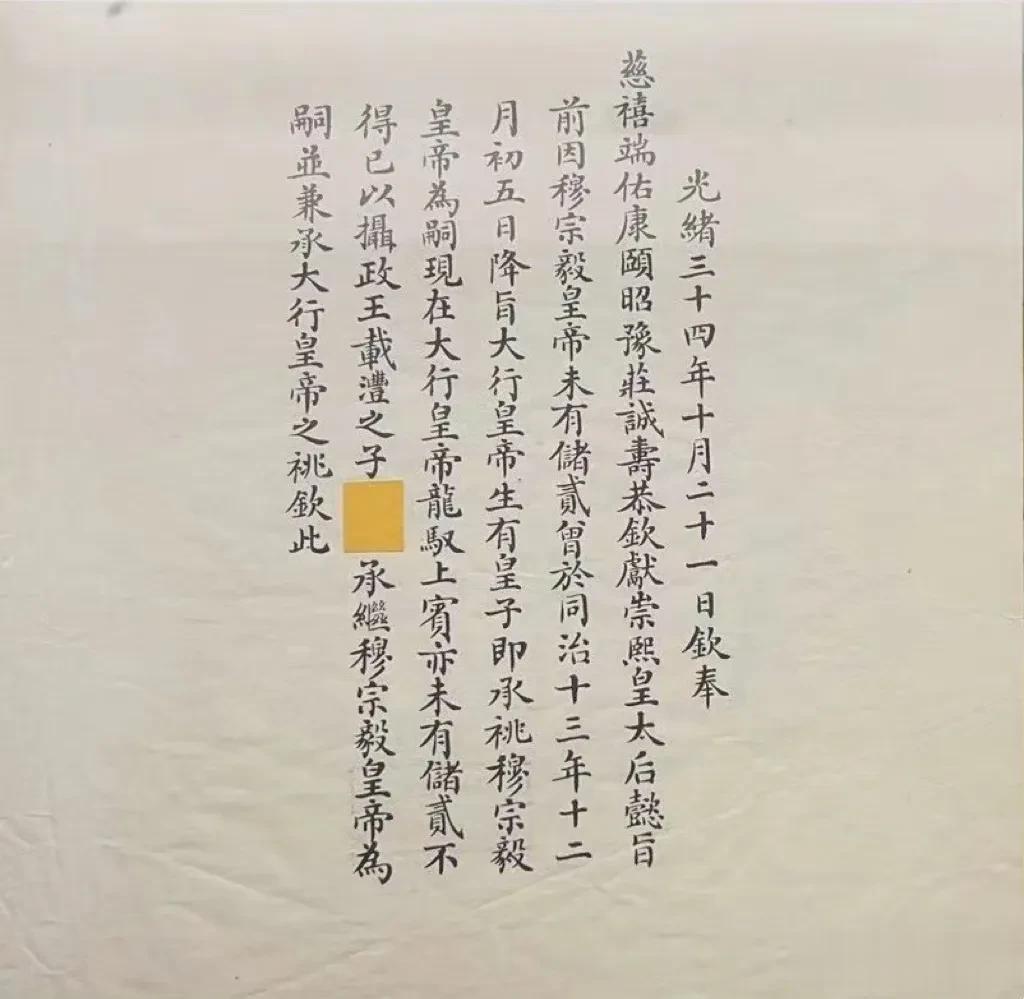 光緒三十四年十月二十一日欽奉
慈禧端佑康頤昭豫莊誠壽恭欽獻崇熙皇太后懿旨
前因穆宗毅皇帝未有儲貳曾於同治十三年十二
月初五日降旨大行皇帝生有皇子即承祧穆宗毅
皇帝為嗣現在大行皇帝龍馭上賓亦未有儲貳不
得已以攝政王載灃之子承繼穆宗毅皇帝為
嗣並兼承大行皇帝之祧欽此